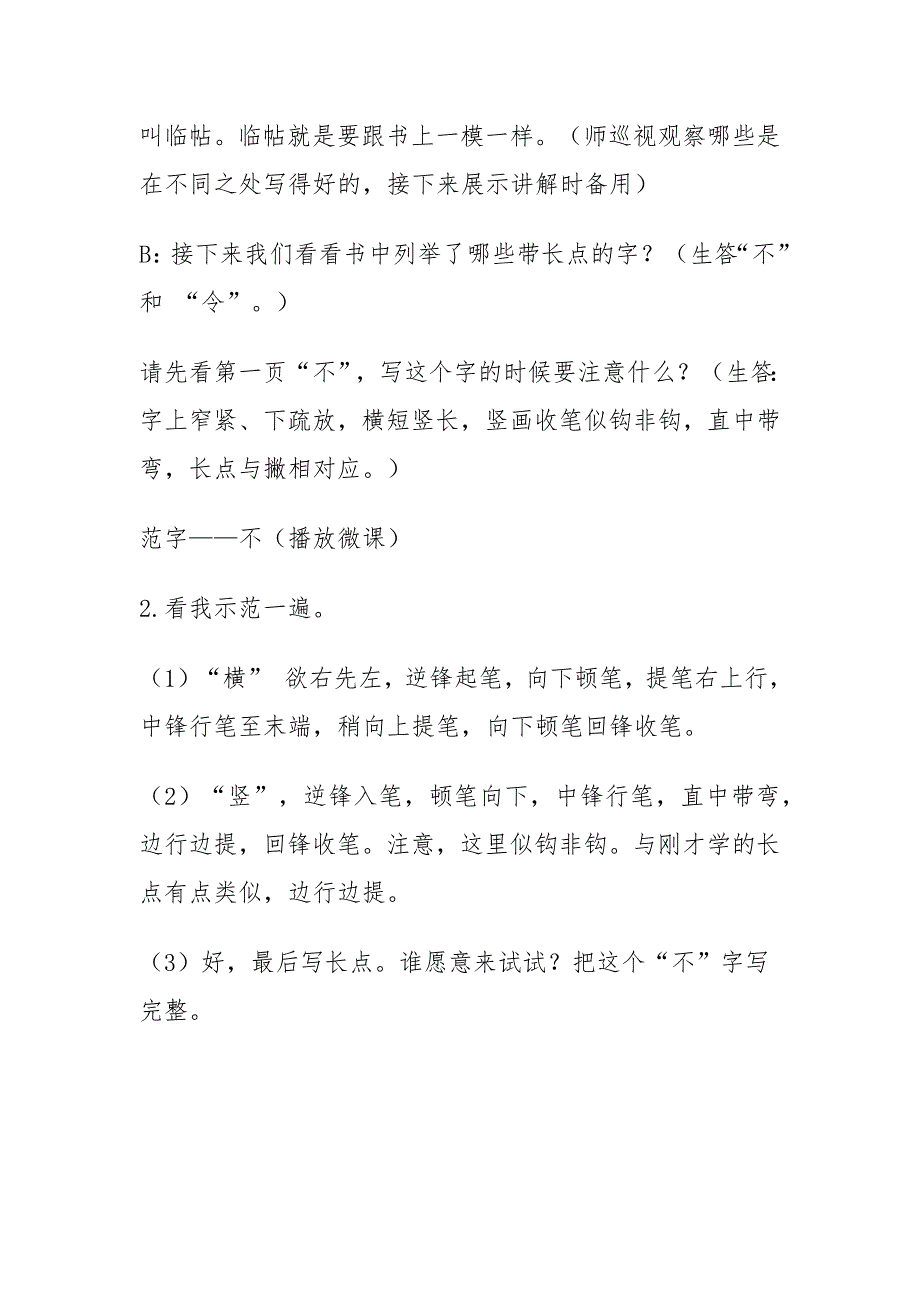 叫临帖。临帖就是要跟书上一模一样。（师巡视观察哪些是
在不同之处写得好的，接下来展示讲解时备用）
B：接下来我们看看书中列举了哪些带长点的字？（生答“不”
和 “令”。）
请先看第一页“不”，写这个字的时候要注意什么？（生答：
字上窄紧、下疏放，横短竖长，竖画收笔似钩非钩，直中带
弯，长点与撇相对应。）
范字——不（播放微课）
2.看我示范一遍。
（1）“横” 欲右先左，逆锋起笔，向下顿笔，提笔右上行，
中锋行笔至末端，稍向上提笔，向下顿笔回锋收笔。
（2）“竖”，逆锋入笔，顿笔向下，中锋行笔，直中带弯，
边行边提，回锋收笔。注意，这里似钩非钩。与刚才学的长
点有点类似，边行边提。
（3）好，最后写长点。谁愿意来试试？把这个“不”字写
完整。